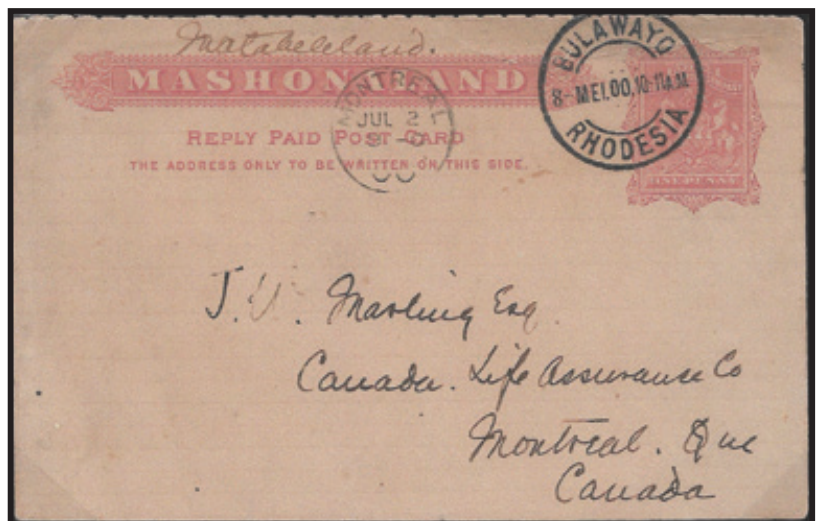 Matabeleland.
MASHONALAND
REPLY PAID POST CARD
THE ADDRESS ONLY TO BE WRITTEN ON THIS SIDE.
BULAWAYO
8-MEI.00.10-11A.M.
RHODESIA
MONTREAL
JUL 2
00
ONE PENNY
J. Marling Esq.
Canada. Life Assurance Co
Montreal. Que
Canada